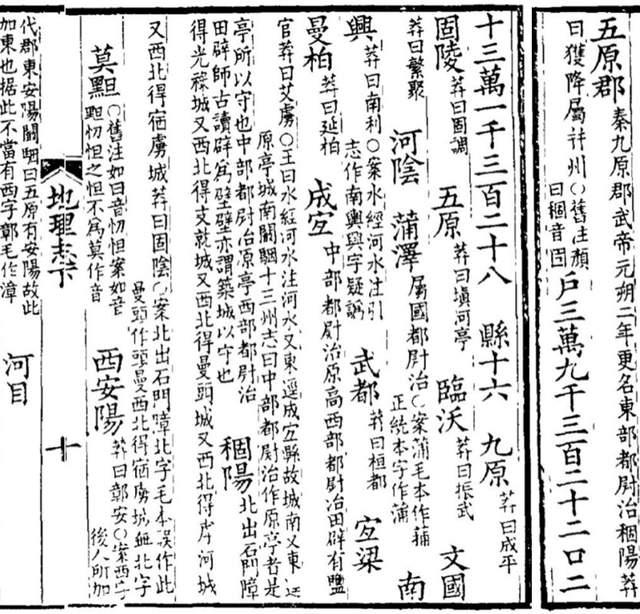 五原郡 秦九原郡武帝元朔二年更名東部都尉治稒陽莽
曰獲降屬并州○舊注顏
曰稒音固 戶三萬九千三百二十二口二
十三萬一千三百二十八 縣十六 九原 莽曰成平
固陵 莽曰固調 五原 莽曰填河亭 臨沃 莽曰振武 文國
莽曰繁聚 河陰 蒲澤 屬國都尉治○案蒲毛本作捕
正統本字作蒲 南
興 莽曰南利○案水經河水注引
志作南輿興字疑譌 武都 莽曰桓都 宜梁
曼柏 莽曰延柏 成宜 中部都尉治原高西部都尉治田辟有鹽
官莽曰艾虜○王曰水經河水注河水又東逕成宜縣故城南又東逕
原亭城南闞駰十三州志曰中部都尉治作原亭者是
亭所以守也中部都尉治原亭西部都尉治
田辟師古讀辟爲壁壁亦謂築城以守也 稒陽 北出石門障
得光祿城又西北得支就城又西北得曼頭城又西北得虖河城
又西北得宿虜城莽曰固陰○案北出石門障北字毛本誤作此
曼頭作頭曼西北得宿虜城無北字
莫䵣 ○舊注如曰音忉怛案如音
䵣忉怛之怛不爲莫作音 西安陽 莽曰鄣安○案西字
後人所加
地理志下 十
代郡東安陽闞駰曰五原有安陽故此
加東也據此不當有西字鄣毛作漳 河目